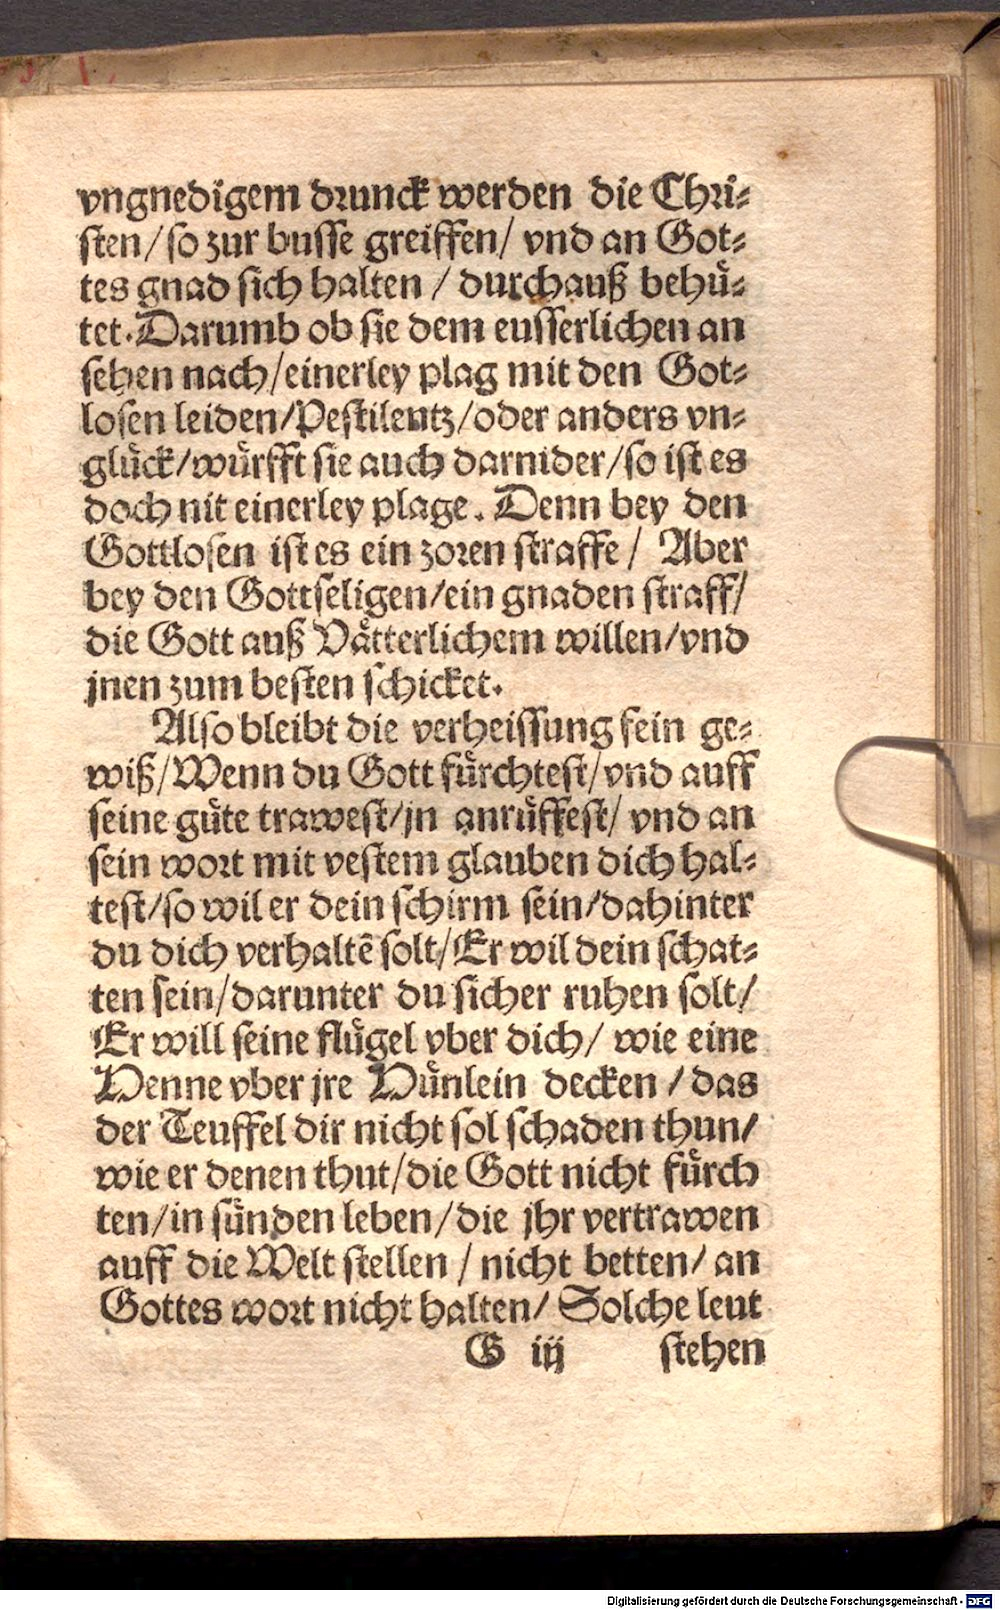 vngnedigem drunck werden die Chri-
sten/so zur busse greiffen/ vnd an Got-
tes gnad sich halten / durchauß behuͤ-
tet. Darumb ob sie dem eusserlichen an
sehen nach/einerley plag mit den Got-
losen leiden/Pestilentz/oder anders vn-
gluͤck/wuͤrfft sie auch darnider/so ist es
doch nit einerley plage. Denn bey den
Gottlosen ist es ein zoren straffe / Aber
bey den Gottseligen/ein gnaden straff/
die Gott auß Vaͤtterlichem willen/vnd
jnen zum besten schicket.
Also bleibt die verheissung fein ge-
wiß/Wenn du Gott fuͤrchtest/vnd auff
seine guͤte trawest/jn anruͤffest/ vnd an
sein wort mit vestem glauben dich hal-
test/so wil er dein schirm sein/dahinter
du dich verhaltẽ solt/Er wil dein schat-
ten sein/darunter du sicher ruhen solt/
Er will seine fluͤgel vber dich/ wie eine
Henne vber jre Huͤnlein decken / das
der Teuffel dir nicht sol schaden thun/
wie er denen thut/die Gott nicht fuͤrch
ten/in suͤnden leben/die jhr vertrawen
auff die Welt stellen / nicht betten/ an
Gottes wort nicht halten/ Solche leut
G iij stehen
Digitalisierung gefördert durch die Deutsche Forschungsgemeinschaft - DFG